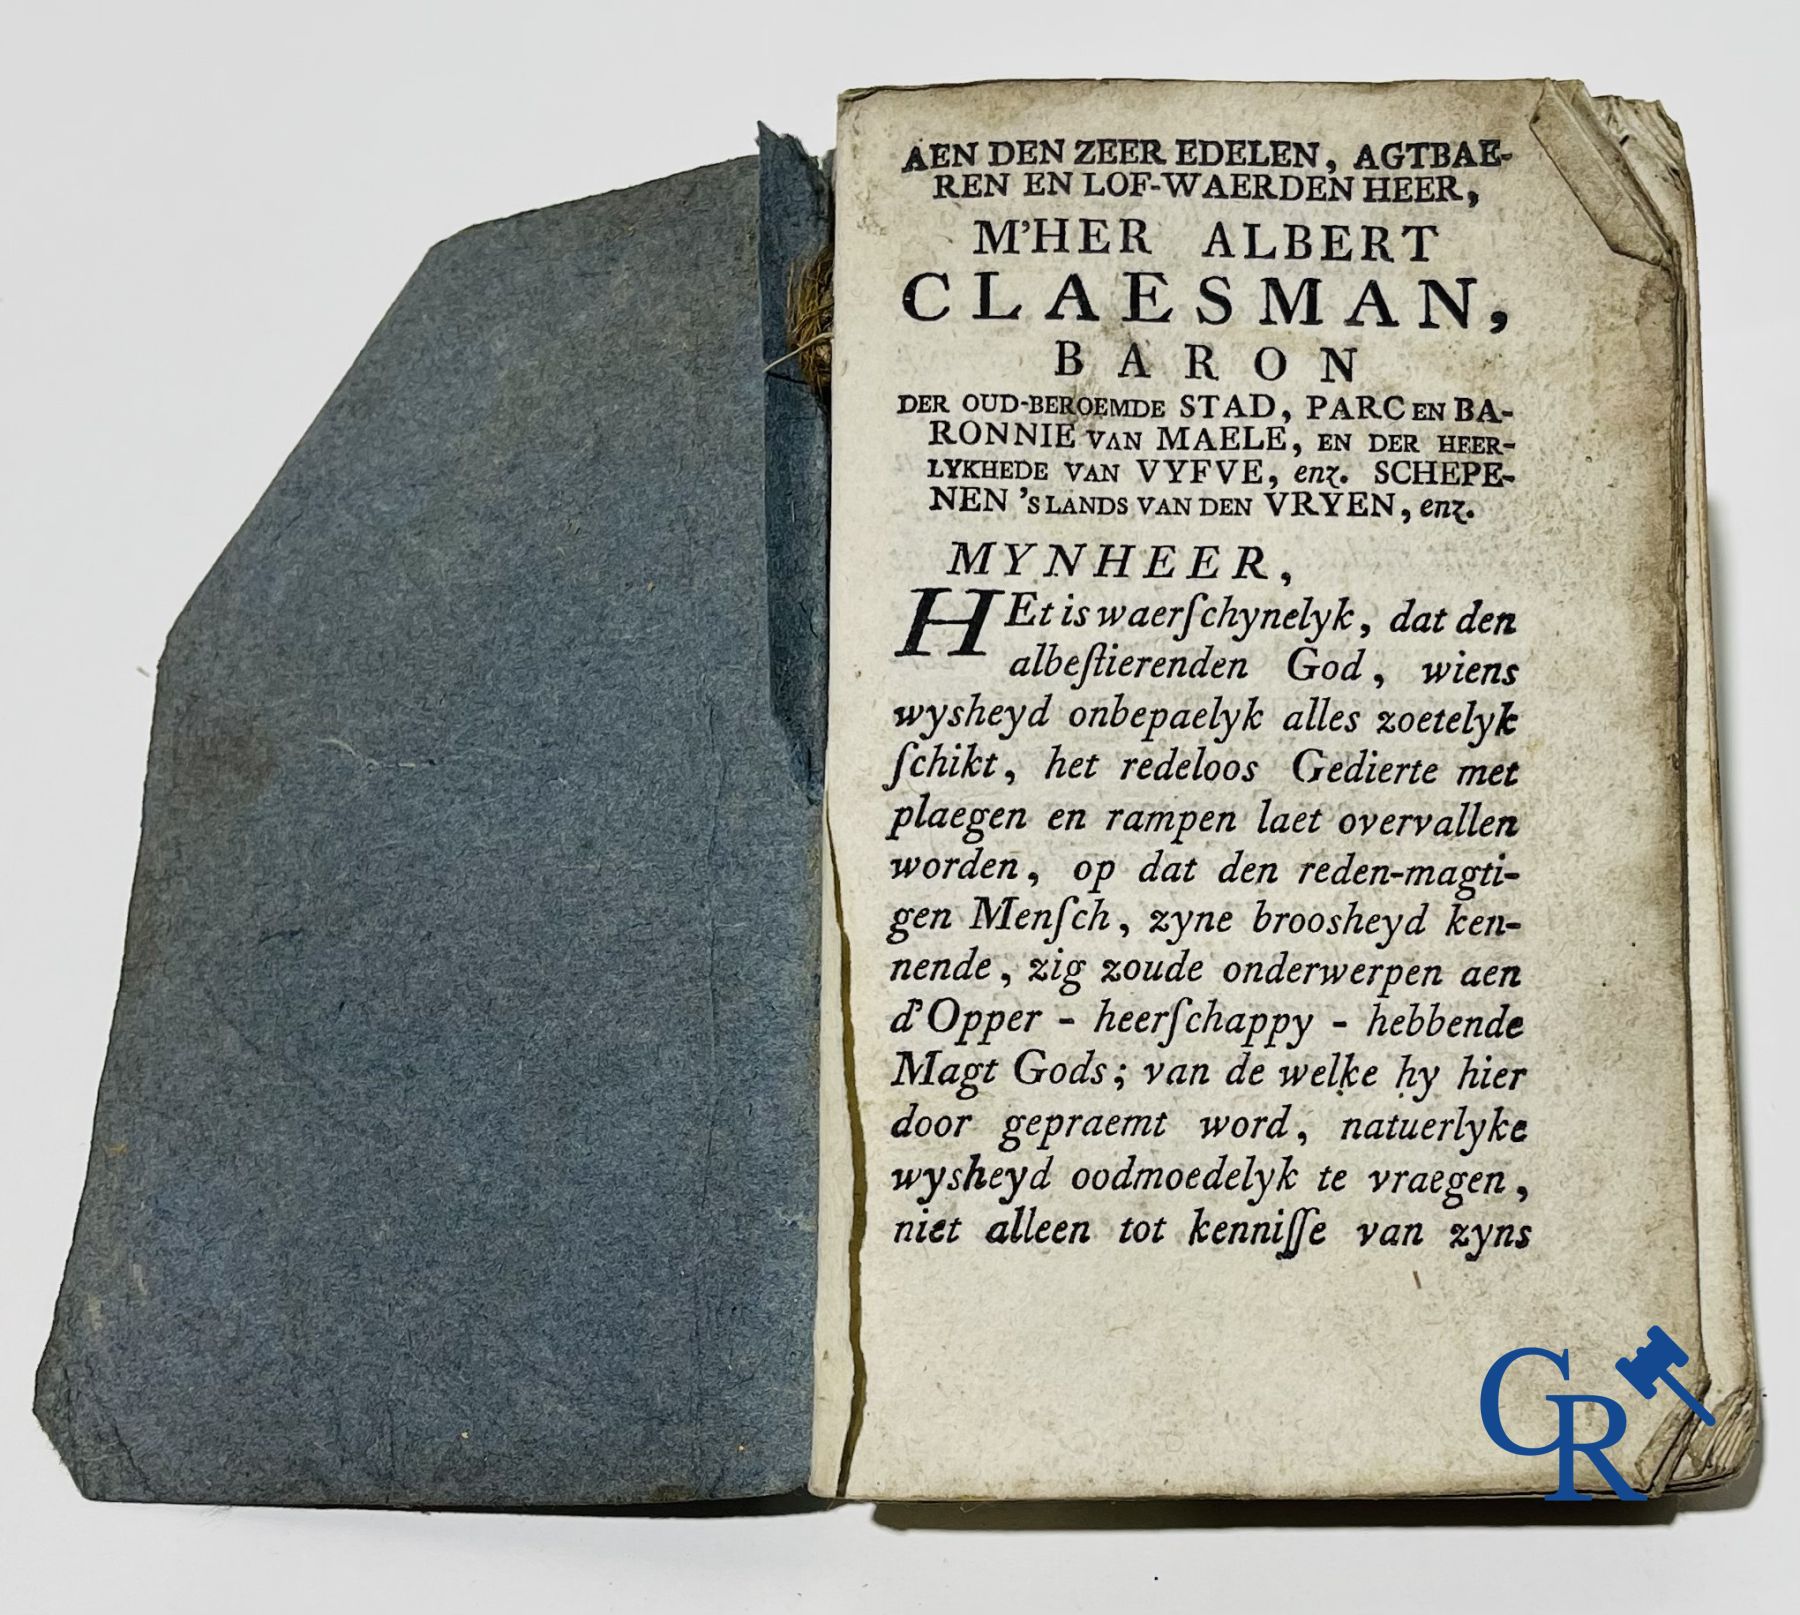 AEN DEN ZEER EDELEN, AGTBAE-
REN EN LOF-WAERDEN HEER,
M'HER ALBERT
CLAESMAN,
BARON
DER OUD-BEROEMDE STAD, PARC EN BA-
RONNIE VAN MAELE, EN DER HEER-
LYKHEDE VAN VYFVE, enz. SCHEPE-
NEN 'S LANDS VAN DEN VRYEN, enz.
MYNHEER,
HEt is waerſchynelyk, dat den
albeſtierenden God, wiens
wysheyd onbepaelyk alles zoetelyk
ſchikt, het redeloos Gedierte met
plaegen en rampen laet overvallen
worden, op dat den reden-magti-
gen Menſch, zyne broosheyd ken-
nende, zig zoude onderwerpen aen
d'Opper - heerſchappy - hebbende
Magt Gods; van de welke hy hier
door gepraemt word, natuerlyke
wysheyd oodmoedelyk te vraegen,
niet alleen tot kenniſſe van zyns
CR